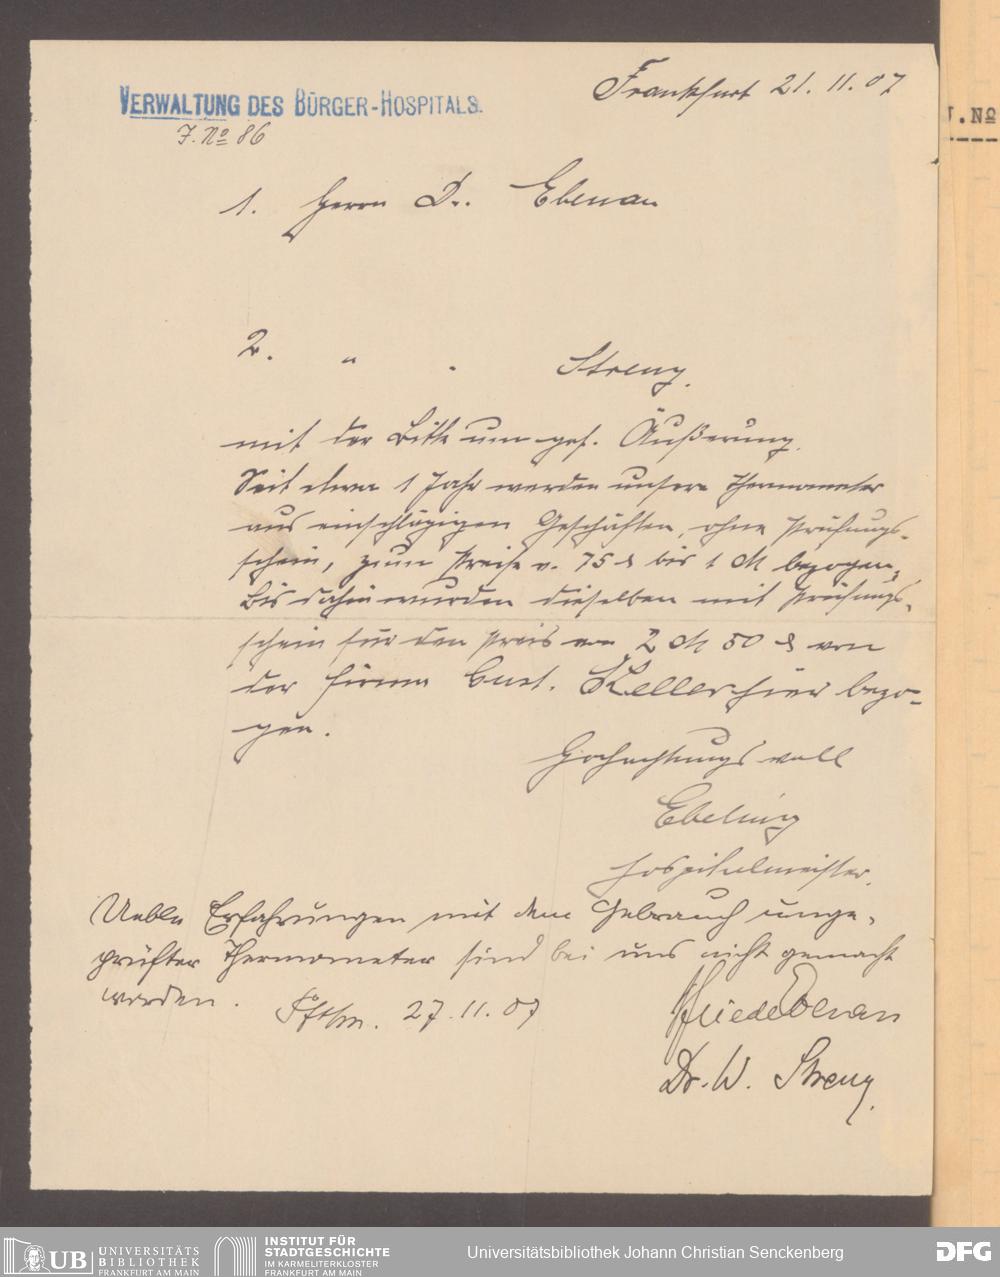 Frankfurt 21. 11. 07
VERWALTUNG DES BÜRGER-HOSPITALS.
J. No 86
J. No
1. Herrn Dr. Ebenau
2. " . Streng.
mit der Bitte um gef. Äußerung.
Seit etwa 1 Jahr werden unsere Thermometer
aus einschlägigen Geschäften, ohne Prüfungs-
schein, zum Preise v. 75 ₰ bis 1 M bezogen,
bis dahin wurden dieselben mit Prüfungs-
schein für den Preis von 2 M 50 ₰ von
der Firma Keller hier bezo-
gen.
Hochachtungsvoll
Ebeling
Hospitalmeister.
Ueble Erfahrungen mit dem Gebrauch unge-
prüfter Thermometer sind bei uns nicht gemacht
worden. 27. 11. 07
Ebenau
Dr. W. Streng.
UB UNIVERSITÄTS
BIBLIOTHEK
FRANKFURT AM MAIN
INSTITUT FÜR
STADTGESCHICHTE
IM KARMELITERKLOSTER
FRANKFURT AM MAIN
Universitätsbibliothek Johann Christian Senckenberg
DFG